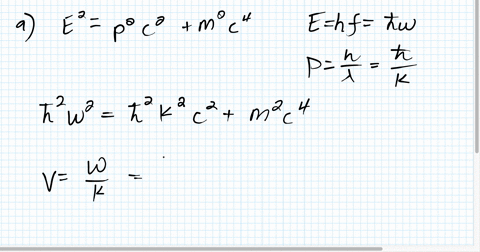 a) E² = p²c² + m²c⁴
E = hf = ħω
P = h/λ = ħ/k
ħ²ω² = ħ²k²c² + m²c⁴
V = ω/k =